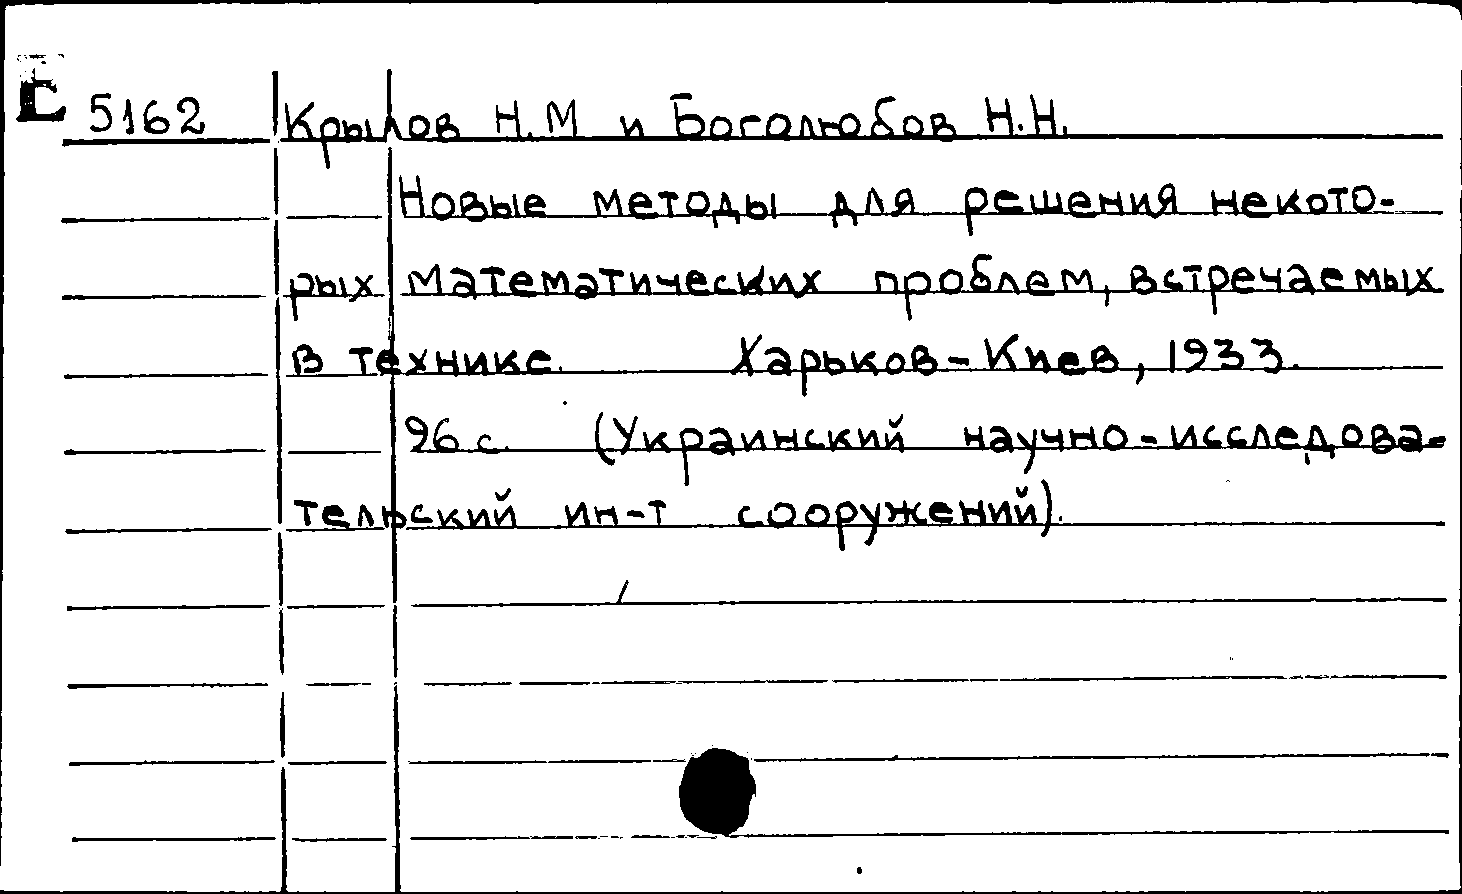 E 5162 Крылов Н.М и Боголюбов Н.Н.
Новые методы для решения некото-
рых математических проблем, встречаемых
в технике. Харьков-Киев, 1933.
96 с. (Украинский научно-исследова-
тельский ин-т сооружений).